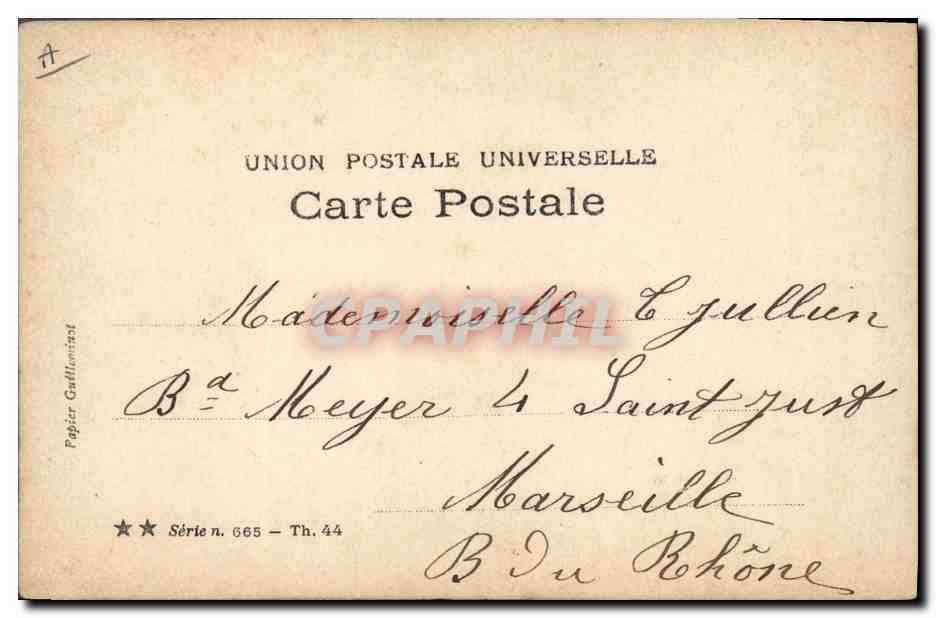 A
UNION POSTALE UNIVERSELLE
Carte Postale
CPAPHIL
Mademoiselle C Jullien
Bd Meyer 4 Saint Just
Marseille
B du Rhône
Papier Guilleminot
★★ Série n. 665 — Th. 44